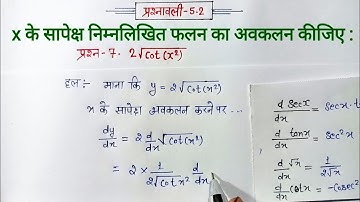 प्रश्नावली-5.2
x के सापेक्ष निम्नलिखित फलन का अवकलन कीजिए :
प्रश्न-7. 2√cot(x²)
हल:- माना कि y = 2√cot(x²)
x के सापेक्ष अवकलन करने पर ...
dy/dx = 2 d/dx √cot(x²)
= 2 × 1/2√cot x² d/dx
d/dx secx = secx.t
d/dx tanx = sec²x
d/dx √x = 1/2√x
d/dx cotx = -cosec²